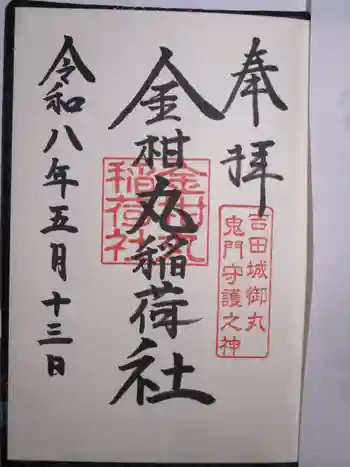 奉拝
吉田城御丸
鬼門守護之神
金柑丸稲荷社
金柑丸
稲荷社
令和八年五月十三日